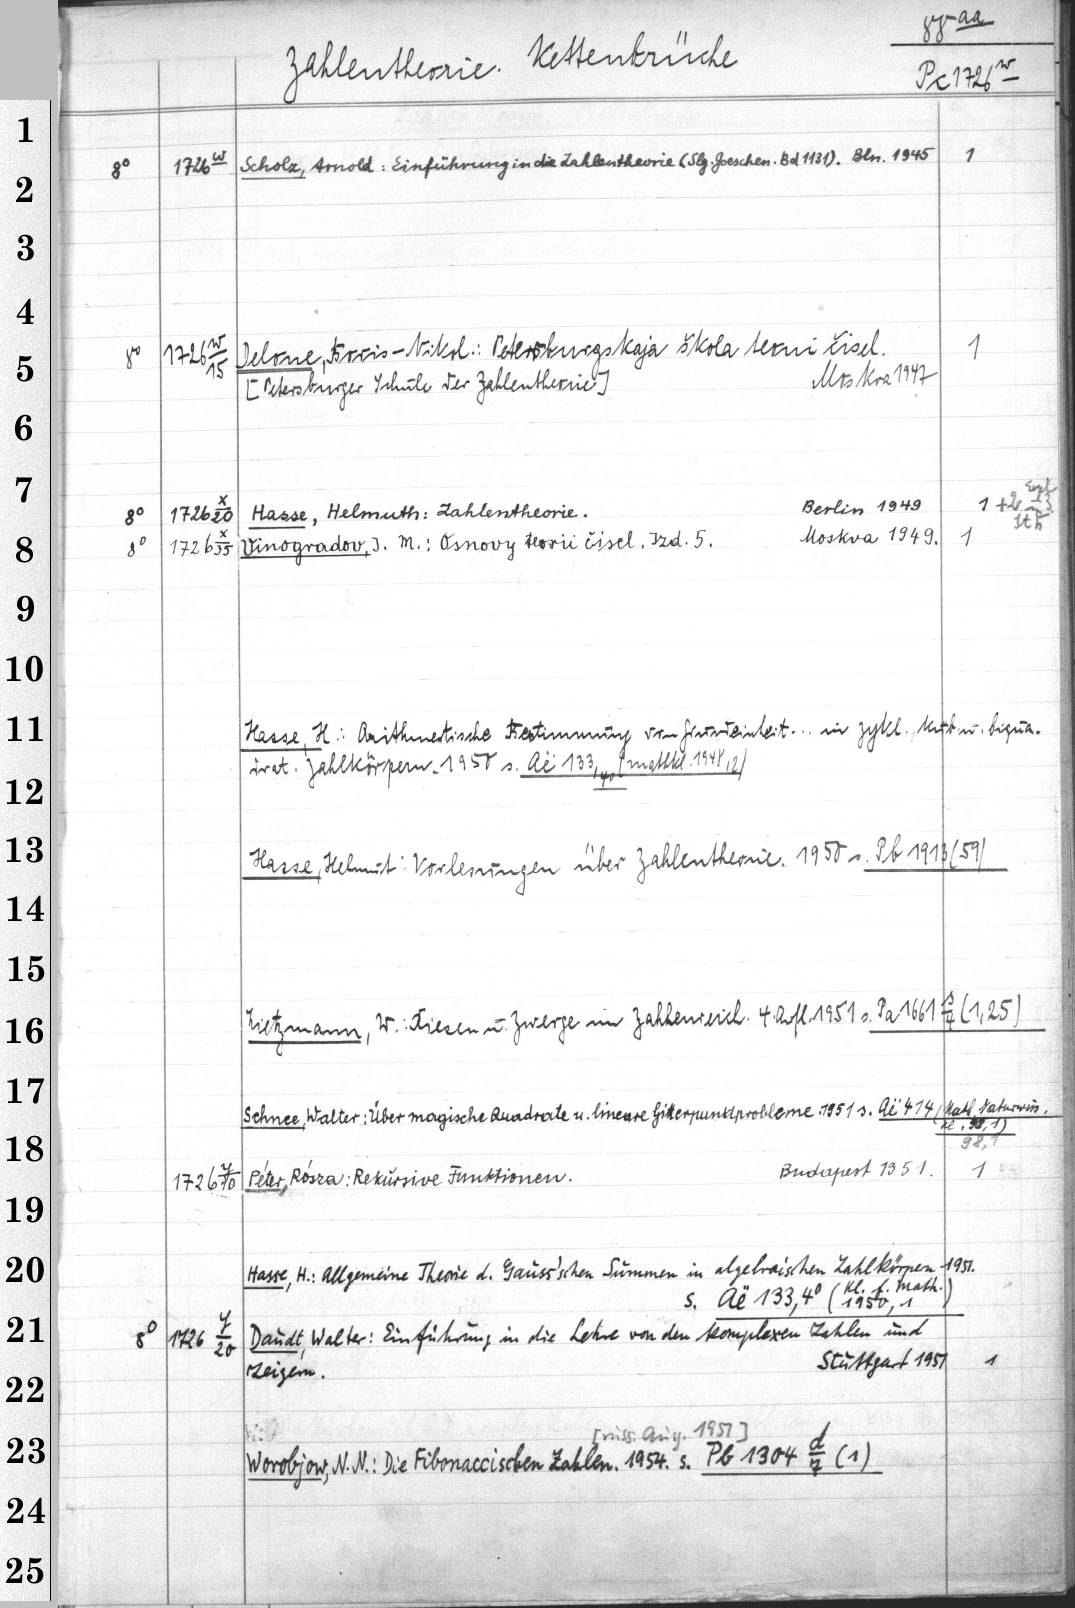 aa
Zahlentheorie. Kettenbrüche
Pc 1726 w
1
8° 1726 w Scholz, Arnold: Einführung in die Zahlentheorie (Slg. Goeschen. Bd 1131). Bln. 1945 1
2
3
4
8° 1726 w/15 Delone, Boris-Nikol.: Petersburgskaja škola teorii čisel. 1
5
[Petersburger Schule der Zahlentheorie] Moskva 1947
6
7
8° 1726 x/20 Hasse, Helmuth: Zahlentheorie. Berlin 1949 1 + 2
8
8° 1726 x/35 Vinogradov, I. M.: Osnovy teorii čisel. Izd. 5. Moskva 1949. 1
9
10
11
Hasse, H.: Arithmetische Bestimmung von Grundeinheit... in zykl., kub. u. biqua-
drat. Zahlkörpern. 1950 s. Aë 133, 4° (mathKl. 1948, 2)
12
13
Hasse, Helmut: Vorlesungen über Zahlentheorie. 1950 s. Pb 1913 (59)
14
15
16
Lietzmann, W.: Riesen u. Zwerge im Zahlenreich. 4. Aufl. 1951 s. Pa 1661 (1,25)
17
Schnee, Walter: Über magische Quadrate u. lineare Gitterpunktprobleme. 1951 s. Aë 414 (Math. Naturwiss.
Kl. 98,1)
98,1
18
1726 y/10 Péter, Rósza: Rekursive Funktionen. Budapest 1951. 1
19
20
Hasse, H.: Allgemeine Theorie d. Gauss'schen Summen in algebraischen Zahlkörpern 1951.
s. Aë 133, 4° (Kl. f. Math. 1950, 1)
21
8° 1726 y/20 Daudt, Walter: Einführung in die Lehre von den komplexen Zahlen und
Zeigern. Stuttgart 1951 1
22
[russ. Ausg. 1951]
23
Worobjow, N. N.: Die Fibonaccischen Zahlen. 1954. s. Pb 1304 d/7 (1)
24
25